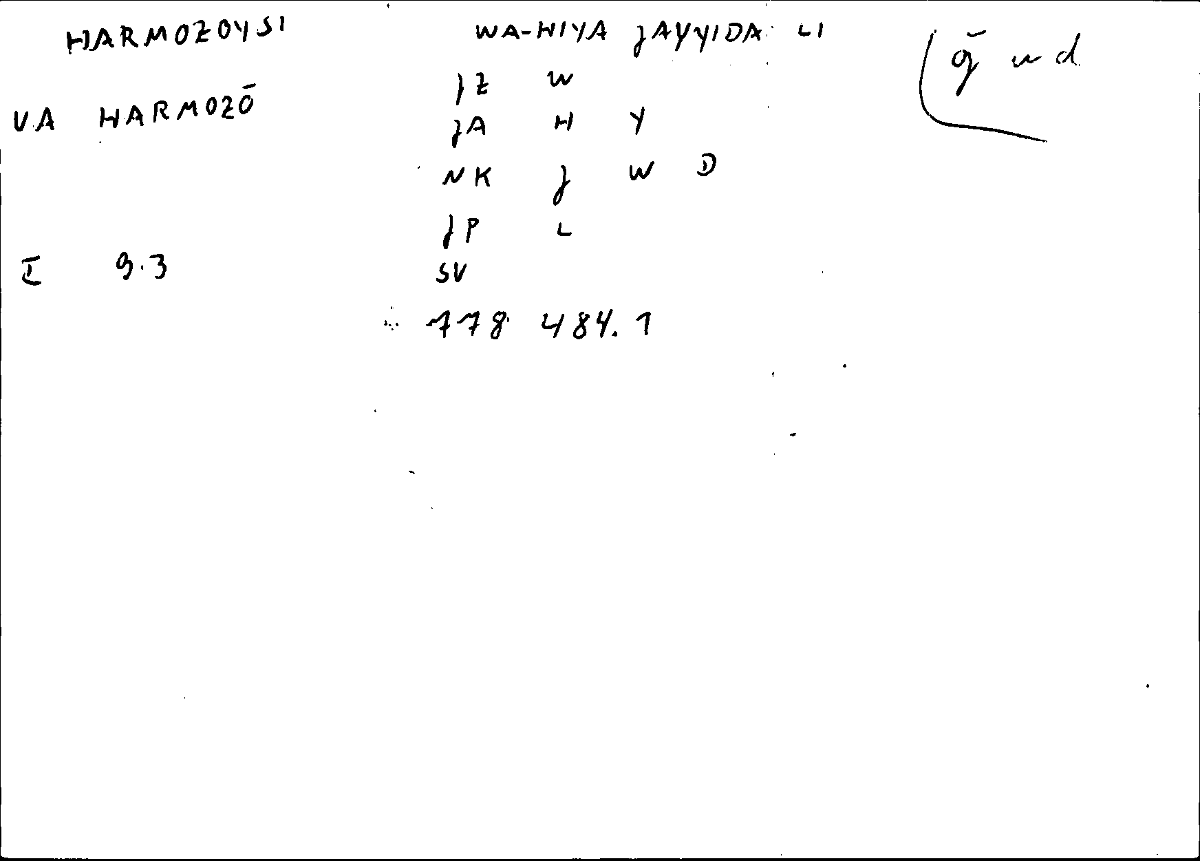 HARMOZOYSI WA-HIYA JAYYIDA LI ǧ w d
JZ W
VA HARMOZŌ JA H Y
NK J W D
JP L
I 9.3 SV
778 484.1